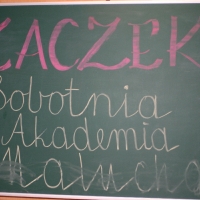 ŻACZEK
Sobotnia
Akademia
Malucha